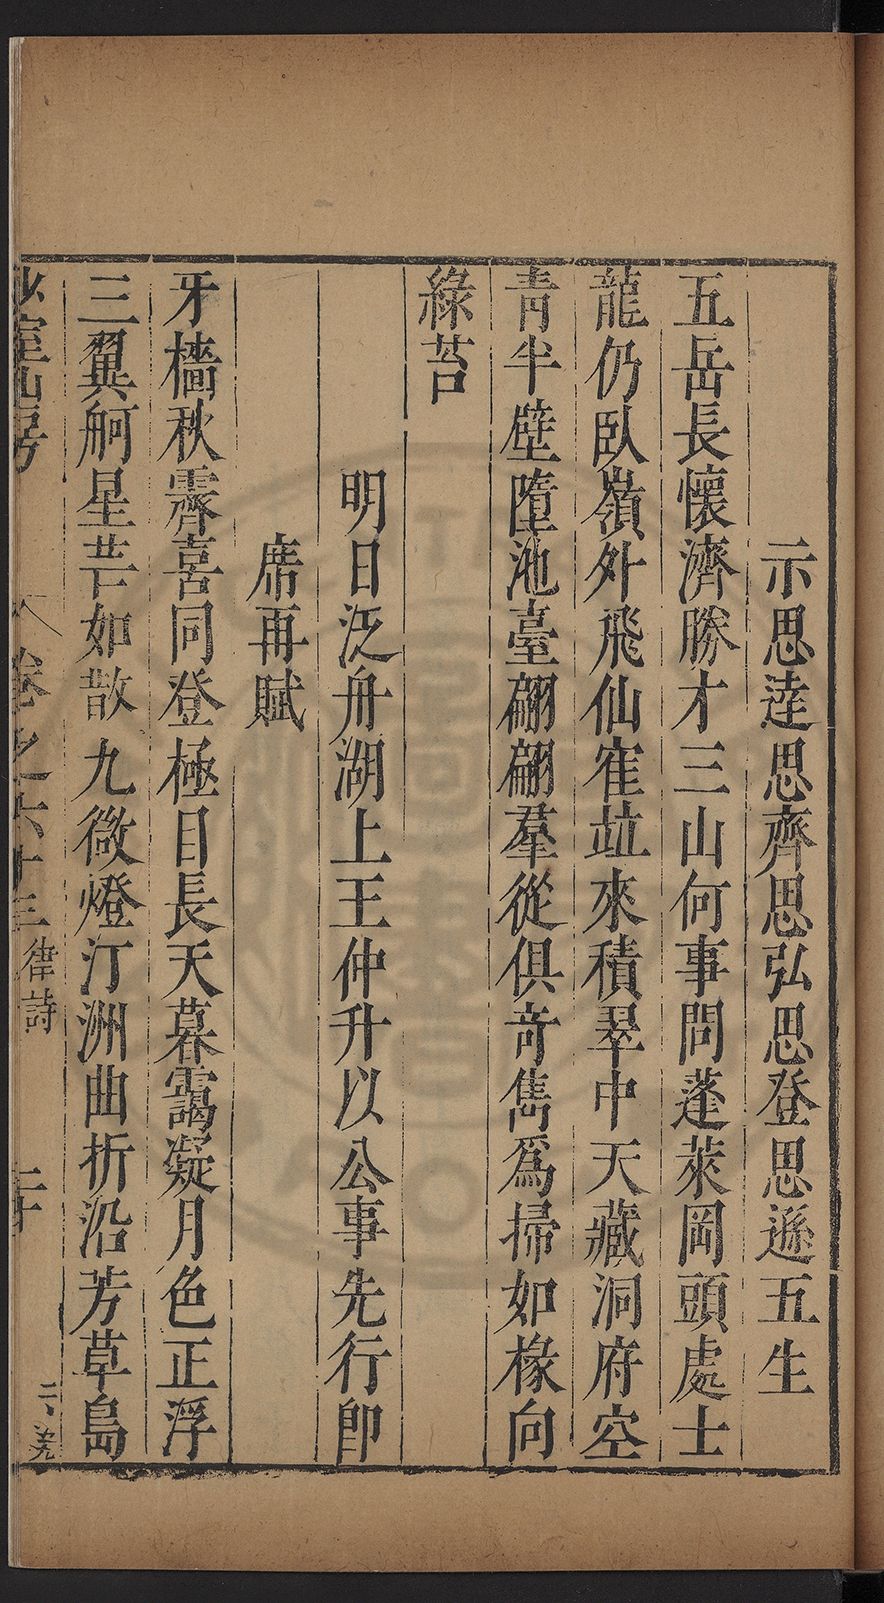 示思逵思齊思弘思登思遜五生
五岳長懷濟勝才三山何事問蓬萊岡頭處士
龍仍臥嶺外飛仙隺竝來積翠中天藏洞府空
青半壁墮池臺翩翩羣從俱奇雋爲掃如椽向
綠苔
明日泛舟湖上王仲升以公事先行卽
席再賦
牙檣秋霽喜同登極目長天暮靄凝月色正浮
三翼舸星芒如散九微燈汀洲曲折沿芳草島
少室山房 卷之六十三 律詩 二十